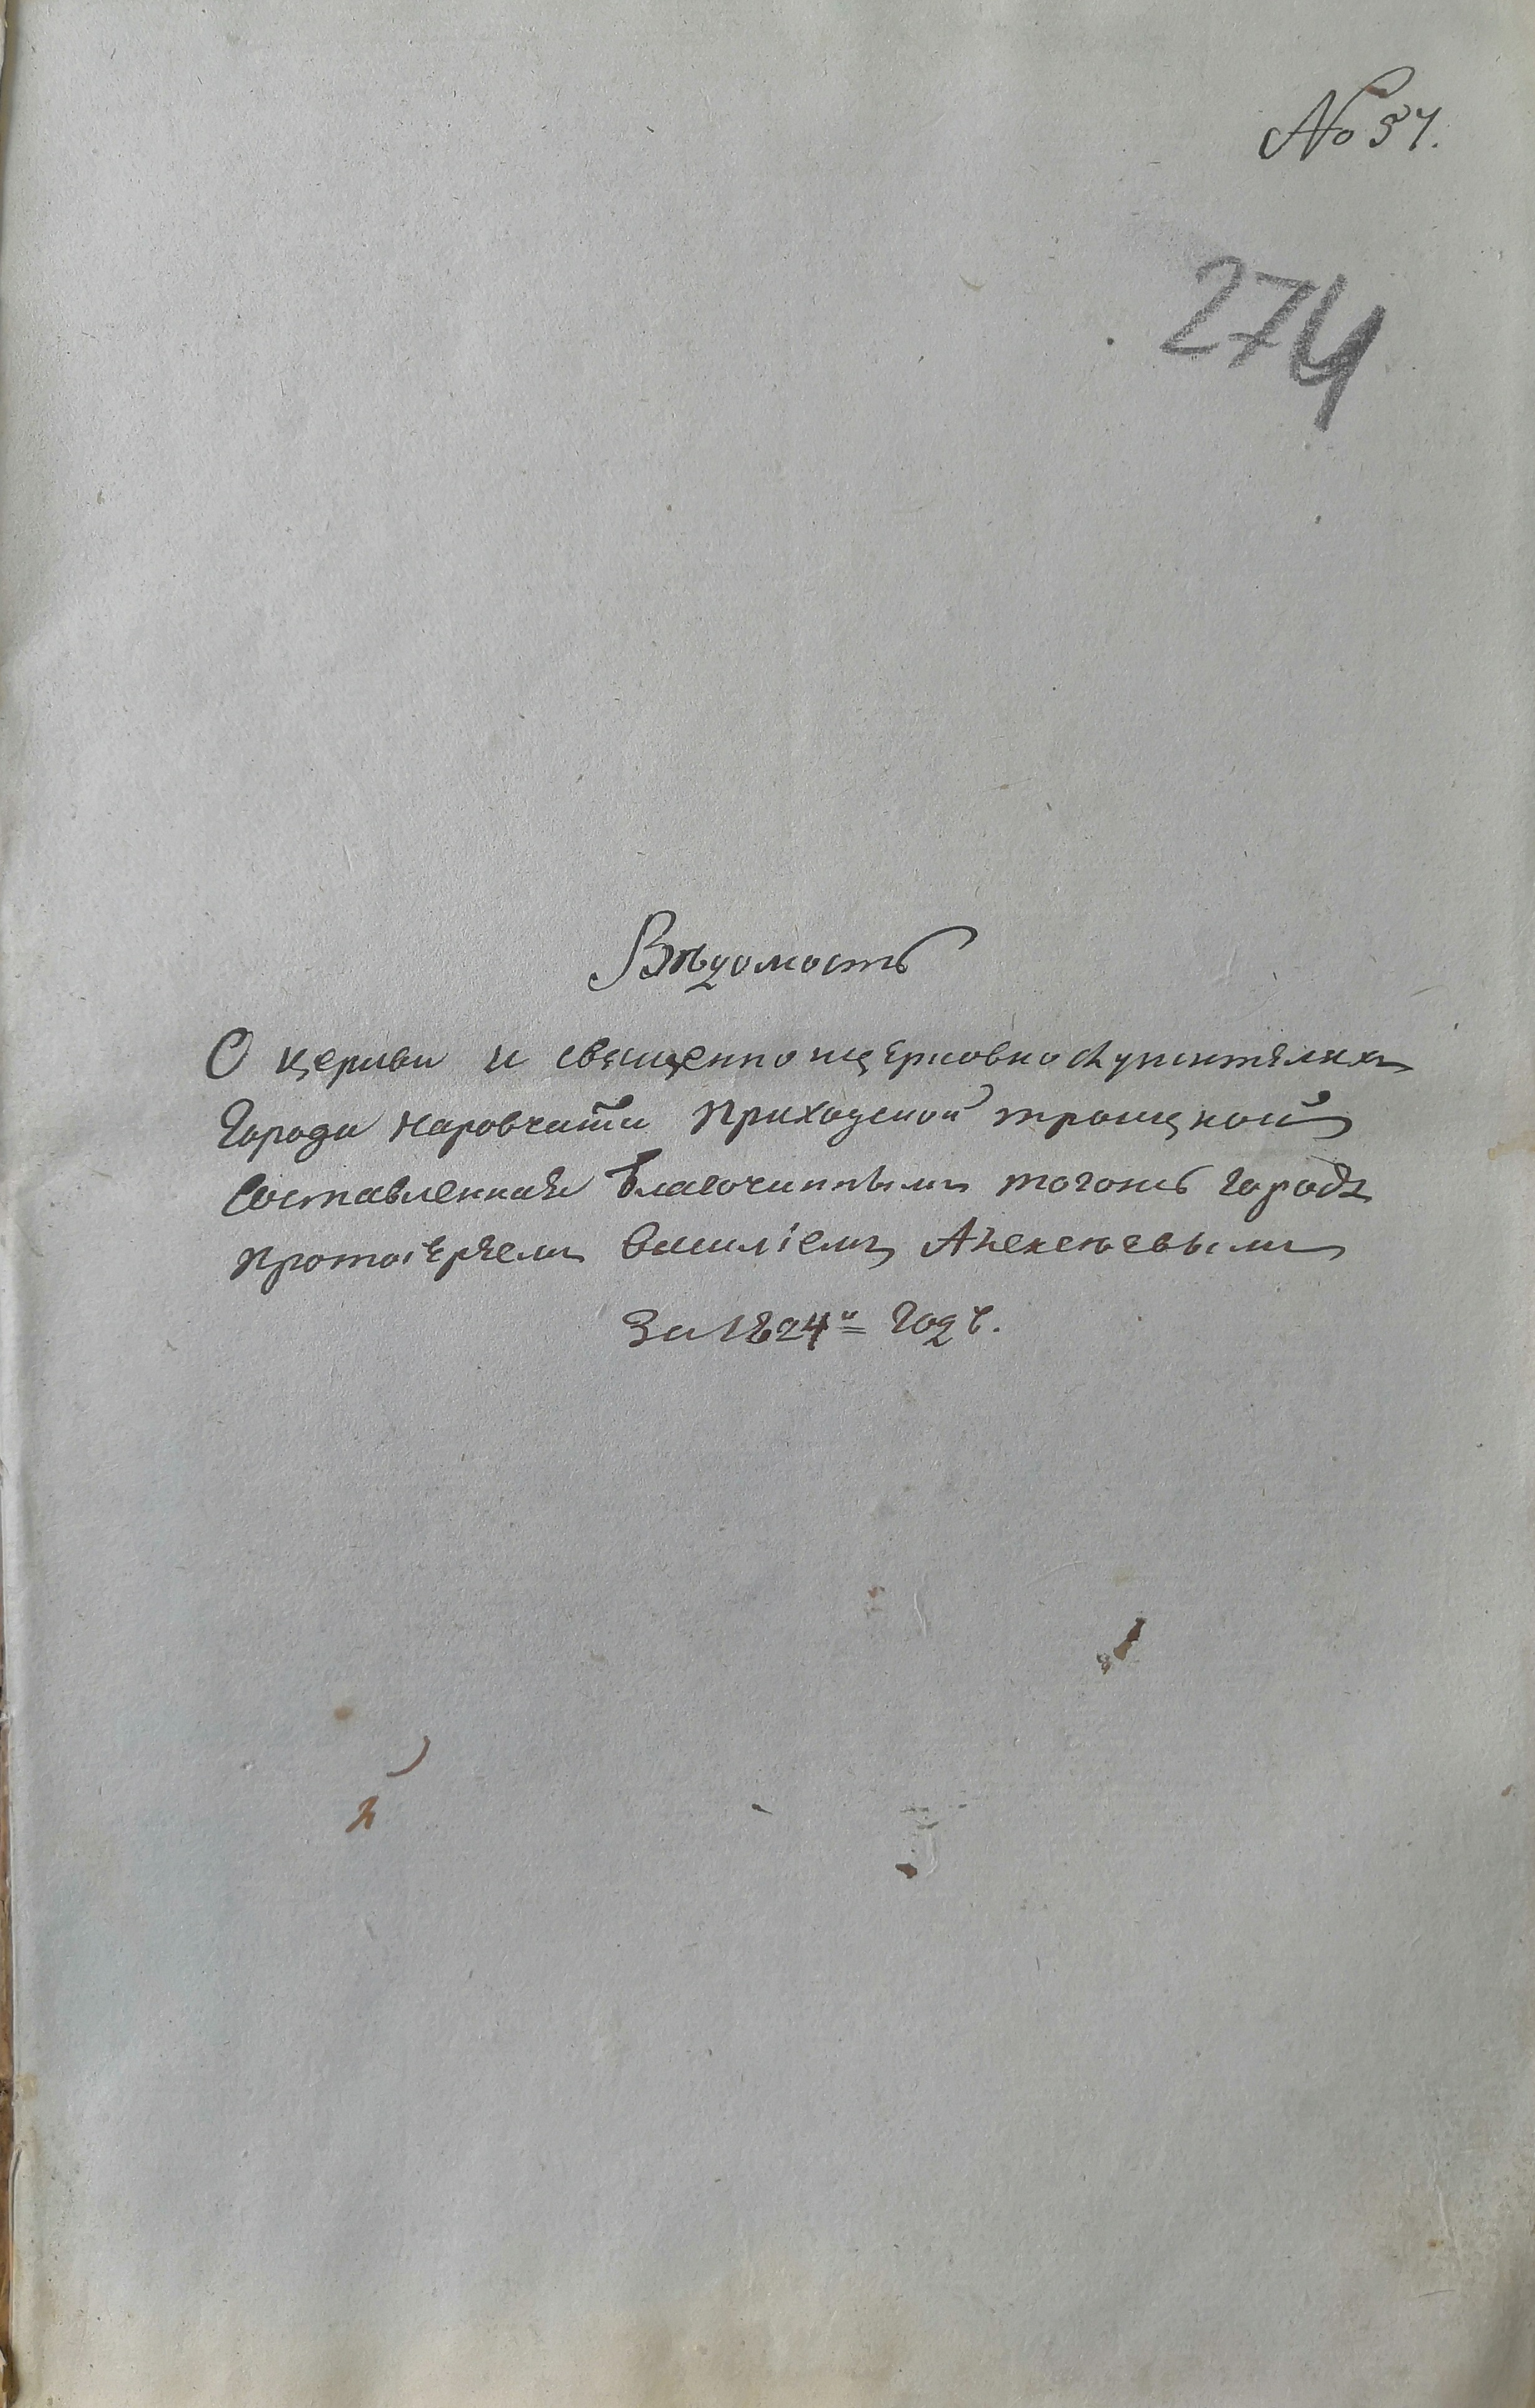 № 37.
274
Вѣдомость
О церкви и священно ицерковнослужителяхъ
Города Наровчата Приходской троицкой
Составленная Благочиннымъ тогожъ города
Протоіереемъ Василіемъ Алексеевымъ
За 1824й годъ.